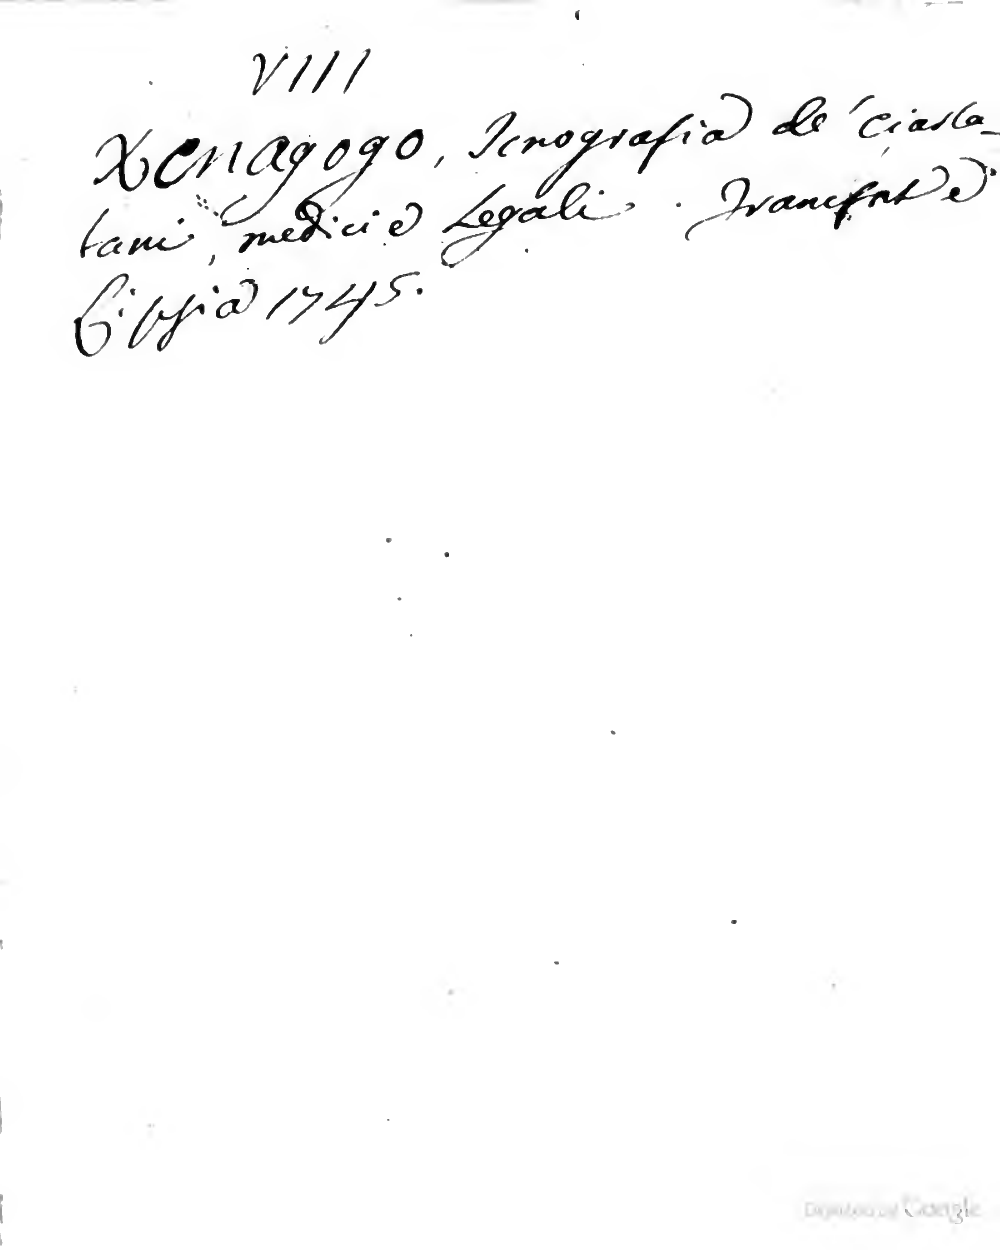 VIII
Xenagogo, Icnografia de' ciarla-
tani, medici e Legali. Francfort e
Lipsia 1745.
Digitized by Google